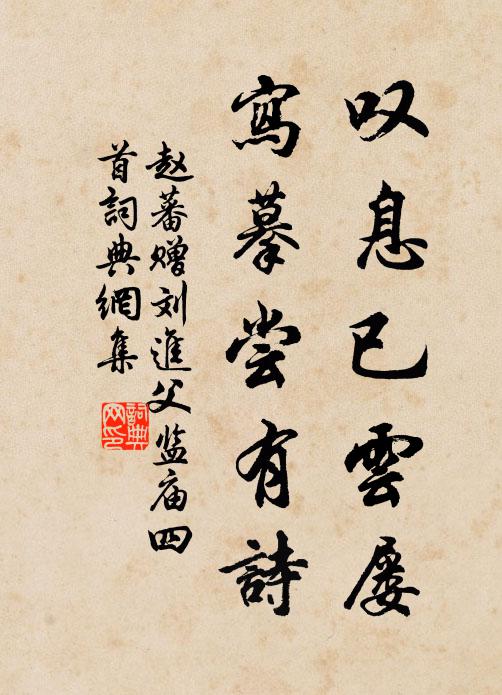 叹息已雲屡
寫摹尝有詩
赵蕃赠刘進父监庙四
首詞典網集
詞典
网印